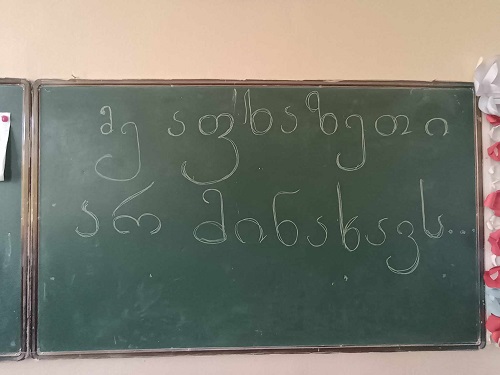 მე აფხაზეთი
არ მინახავს...